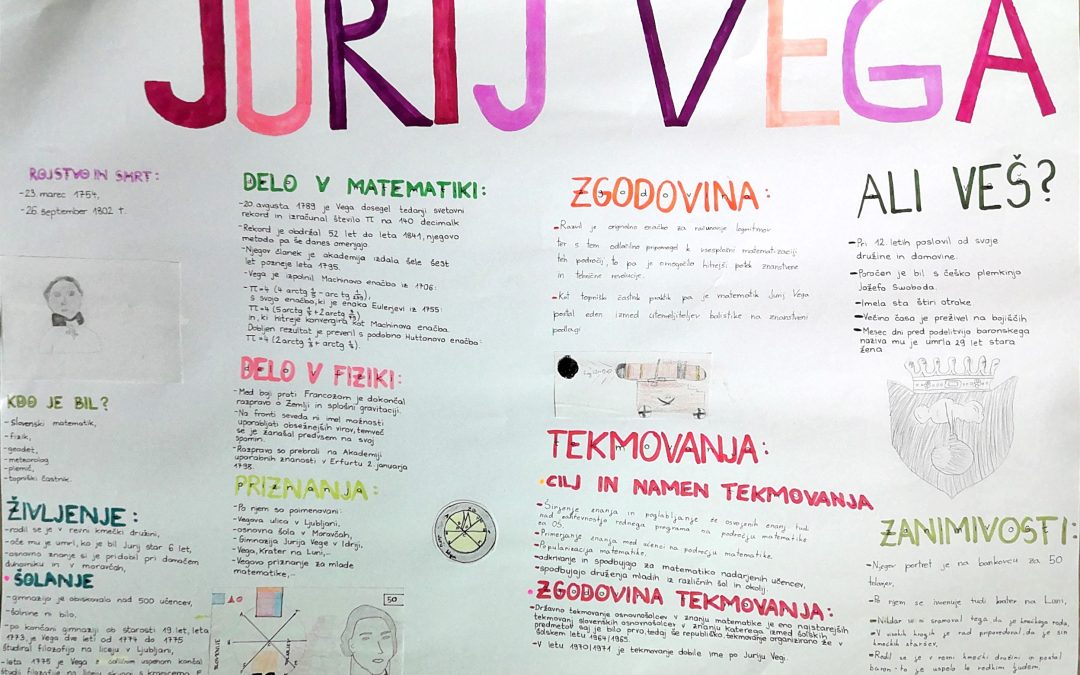 JURIJ VEGA
ROJSTVO IN SMRT:
-23. marec 1754,
-26. september 1802 †.
KDO JE BIL?
-Slovenski matematik,
-fizik,
-geodet,
-meteorolog
-plemič,
-topniški častnik.
ŽIVLJENJE:
-rodil se je v revni kmečki družini,
-oče mu je umrl, ko je bil Jurij star 6 let,
-osnovno znanje si je pridobil pri domačem
duhovniku in v Moravčah,
• ŠOLANJE
-gimnazijo je obiskovalo nad 500 učencev,
-šolnine ni bilo,
-po končani gimnaziji ob starosti 19 let, leta
1773, je Vega dve leti od 1774 do 1775
študiral filozofijo na liceju v Ljubljani,
-leta 1775 je Vega z odličnim uspehom končal
DELO V MATEMATIKI:
-20. avgusta 1789 je Vega dosegel tedanji svetovni
rekord in izračunal število π na 140 decimalk
-Rekord je obdržal 52 let do leta 1841, njegovo
metodo pa še danes omenjajo.
-Njegov članek je akademija izdala šele šest
let pozneje leta 1795.
-Vega je izpolnil Machinovo enačbo iz 1706:
-π=4 (4 arctg 1/5 - arctg 1/239),
s svojo enačbo, ki je enaka Eulerjevi iz 1755:
π=4 (5arctg 1/7 + 2arctg 3/79)
in, ki hitreje konvergira kot Machinova enačba.
Dobljen rezultat je preveril s podobno Huttonovo enačbo:
π=4 (2arctg 1/3 + arctg 1/7).
DELO V FIZIKI:
-Med boji proti Francozom je dokončal
razpravo o Zemlji in splošni gravitaciji.
-Na fronti seveda ni imel možnosti
uporabljati obsežnejših virov, temveč
se je zanašal predvsem na svoj
spomin.
-Razpravo so prebrali na Akademiji
uporabnih znanosti v Erfurtu 2. januarja
1798.
PRIZNANJA:
-Po njem so poimenovani:
-Vegova ulica v Ljubljani,
-osnovna šola v Moravčah,
-Gimnazija Jurija Vege v Idriji,
-Vega, krater na Luni,-
-Vegovo priznanje za mlade
matematike,..
50
ZGODOVINA:
-Razvil je originalno enačbo za računanje logaritmov
ter s tem odločilno pripomogel k vsesplošni matematizaciji
teh področij, to pa je omogočilo hitrejši potek znanstvene
in tehnične revolucije.
-Kot topniški častnik praktik pa je matematik Jurij Vega
postal eden izmed utemeljiteljev balistike na znanstveni
podlagi
TEKMOVANJA:
• CILJ IN NAMEN TEKMOVANJA
-Širjenje znanja in poglabljanje že osvojenih znanj tudi
nad zahtevnostjo rednega programa na področju matematike
za OŠ.
-Primerjanje znanja med učenci na področju matematike.
-Popularizacija matematike.
-odkrivanje in spodbujajo za matematiko nadarjenih učencev,
-spodbujajo druženja mladih iz različnih šol in okolij.
• ZGODOVINA TEKMOVANJA:
-Državno tekmovanje osnovnošolcev v znanju matematike je eno najstarejših
tekmovanj slovenskih osnovnošolcev v znanju katerega izmed šolskih
predmetov saj je bilo prvo, tedaj še republiško, tekmovanje organizirano že v
šolskem letu 1964/1965.
-V letu 1970/1971 je tekmovanje dobile ime po Juriju Vegi.
ALI VEŠ?
-Pri 12. letih poslovil od svoje
družine in domovine.
-Poročen je bil s češko plemkinjo
Jožefo Swoboda.
-Imela sta štiri otroke
-Večino časa je preživel na bojiščih
-Mesec dni pred podelitvijo baronskega
naziva mu je umrla 29 let stara
žena
ZANIMIVOSTI:
-Njegov portret je na bankovcu za 50
tolarjev,
-Po njem se imenuje tudi krater na Luni,
-Nikdar ni se sramoval tega, da je kmečkega rodu,
-V visokih krogih je rad pripovedoval, da je sin
kmečkih staršev,
-Rodil se je v revni kmečki družini in postal
baron - to je uspelo le redkim ljudem.